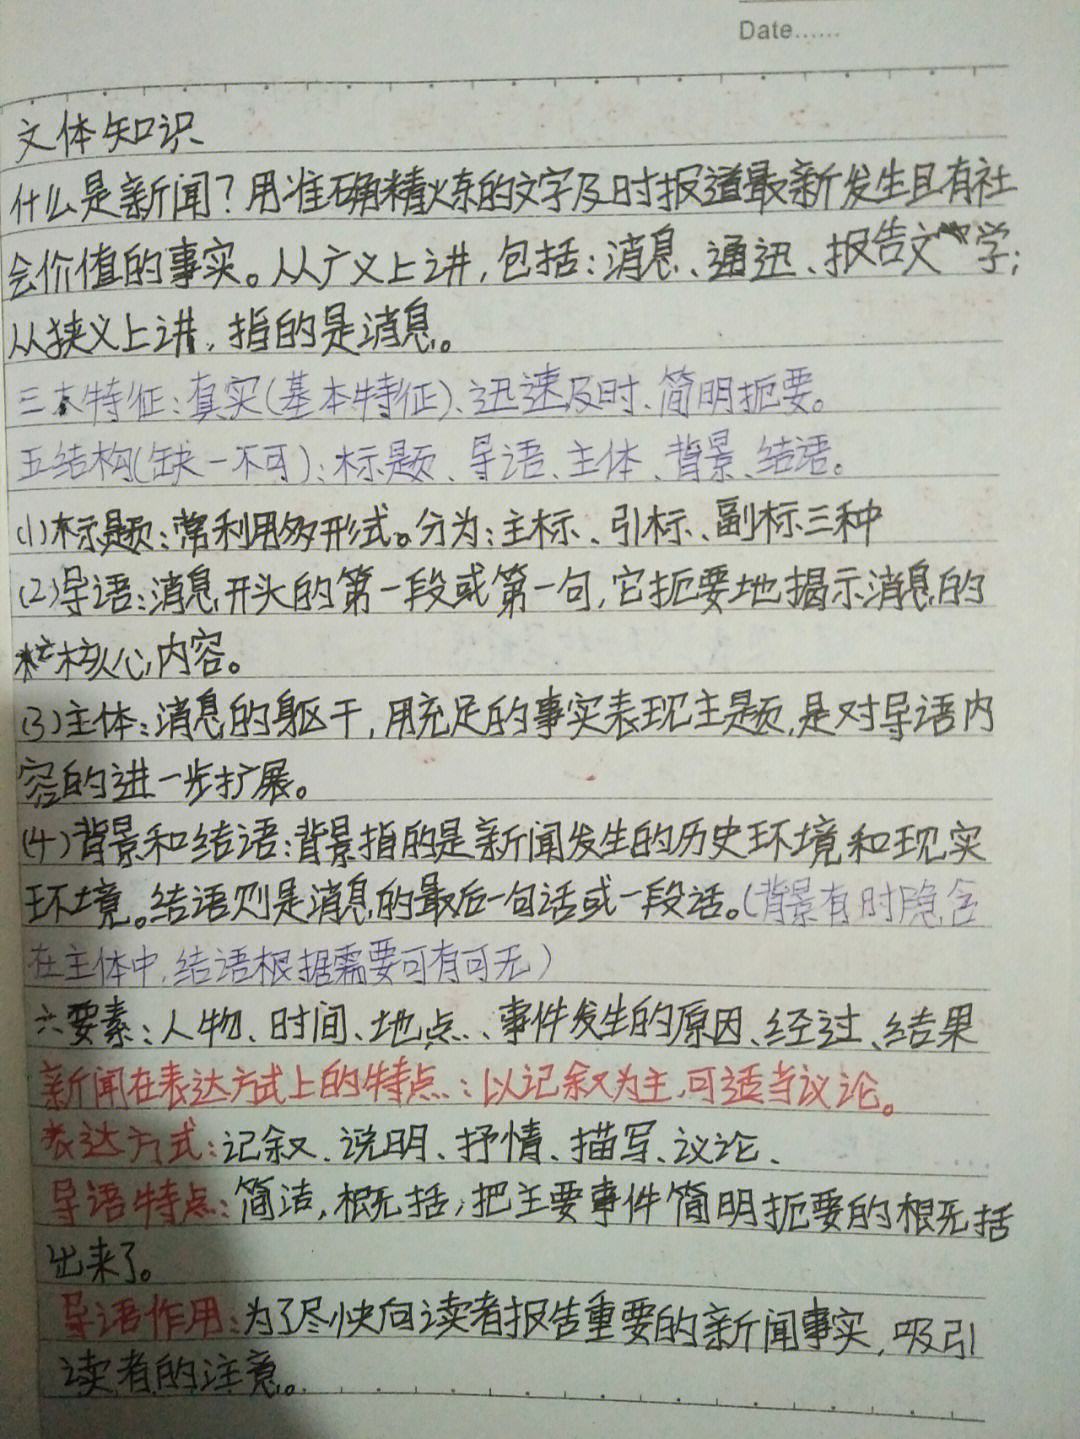 Date......
文体知识
什么是新闻?用准确精炼的文字及时报道最新发生且有社
会价值的事实。从广义上讲,包括:消息、通迅、报告文学;
从狭义上讲,指的是消息。
三大特征:真实(基本特征)、迅速及时、简明扼要。
五结构(缺一不可):标题、导语、主体、背景、结语。
(1)标题:常利用多形式。分为:主标、引标、副标三种
(2)导语:消息开头的第一段或第一句,它扼要地揭示消息的
核心内容。
(3)主体:消息的躯干,用充足的事实表现主题,是对导语内
容的进一步扩展。
(4)背景和结语:背景指的是新闻发生的历史环境和现实
环境。结语则是消息的最后一句话或一段话。(背景有时隐含
在主体中,结语根据需要可有可无)
六要素:人物、时间、地点、事件发生的原因、经过、结果
新闻在表达方式上的特点:以记叙为主,可适当议论。
表达方式:记叙、说明、抒情、描写、议论、
导语特点:简洁,概括,把主要事件简明扼要的概括
出来了。
导语作用:为了尽快向读者报告重要的新闻事实,吸引
读者的注意。